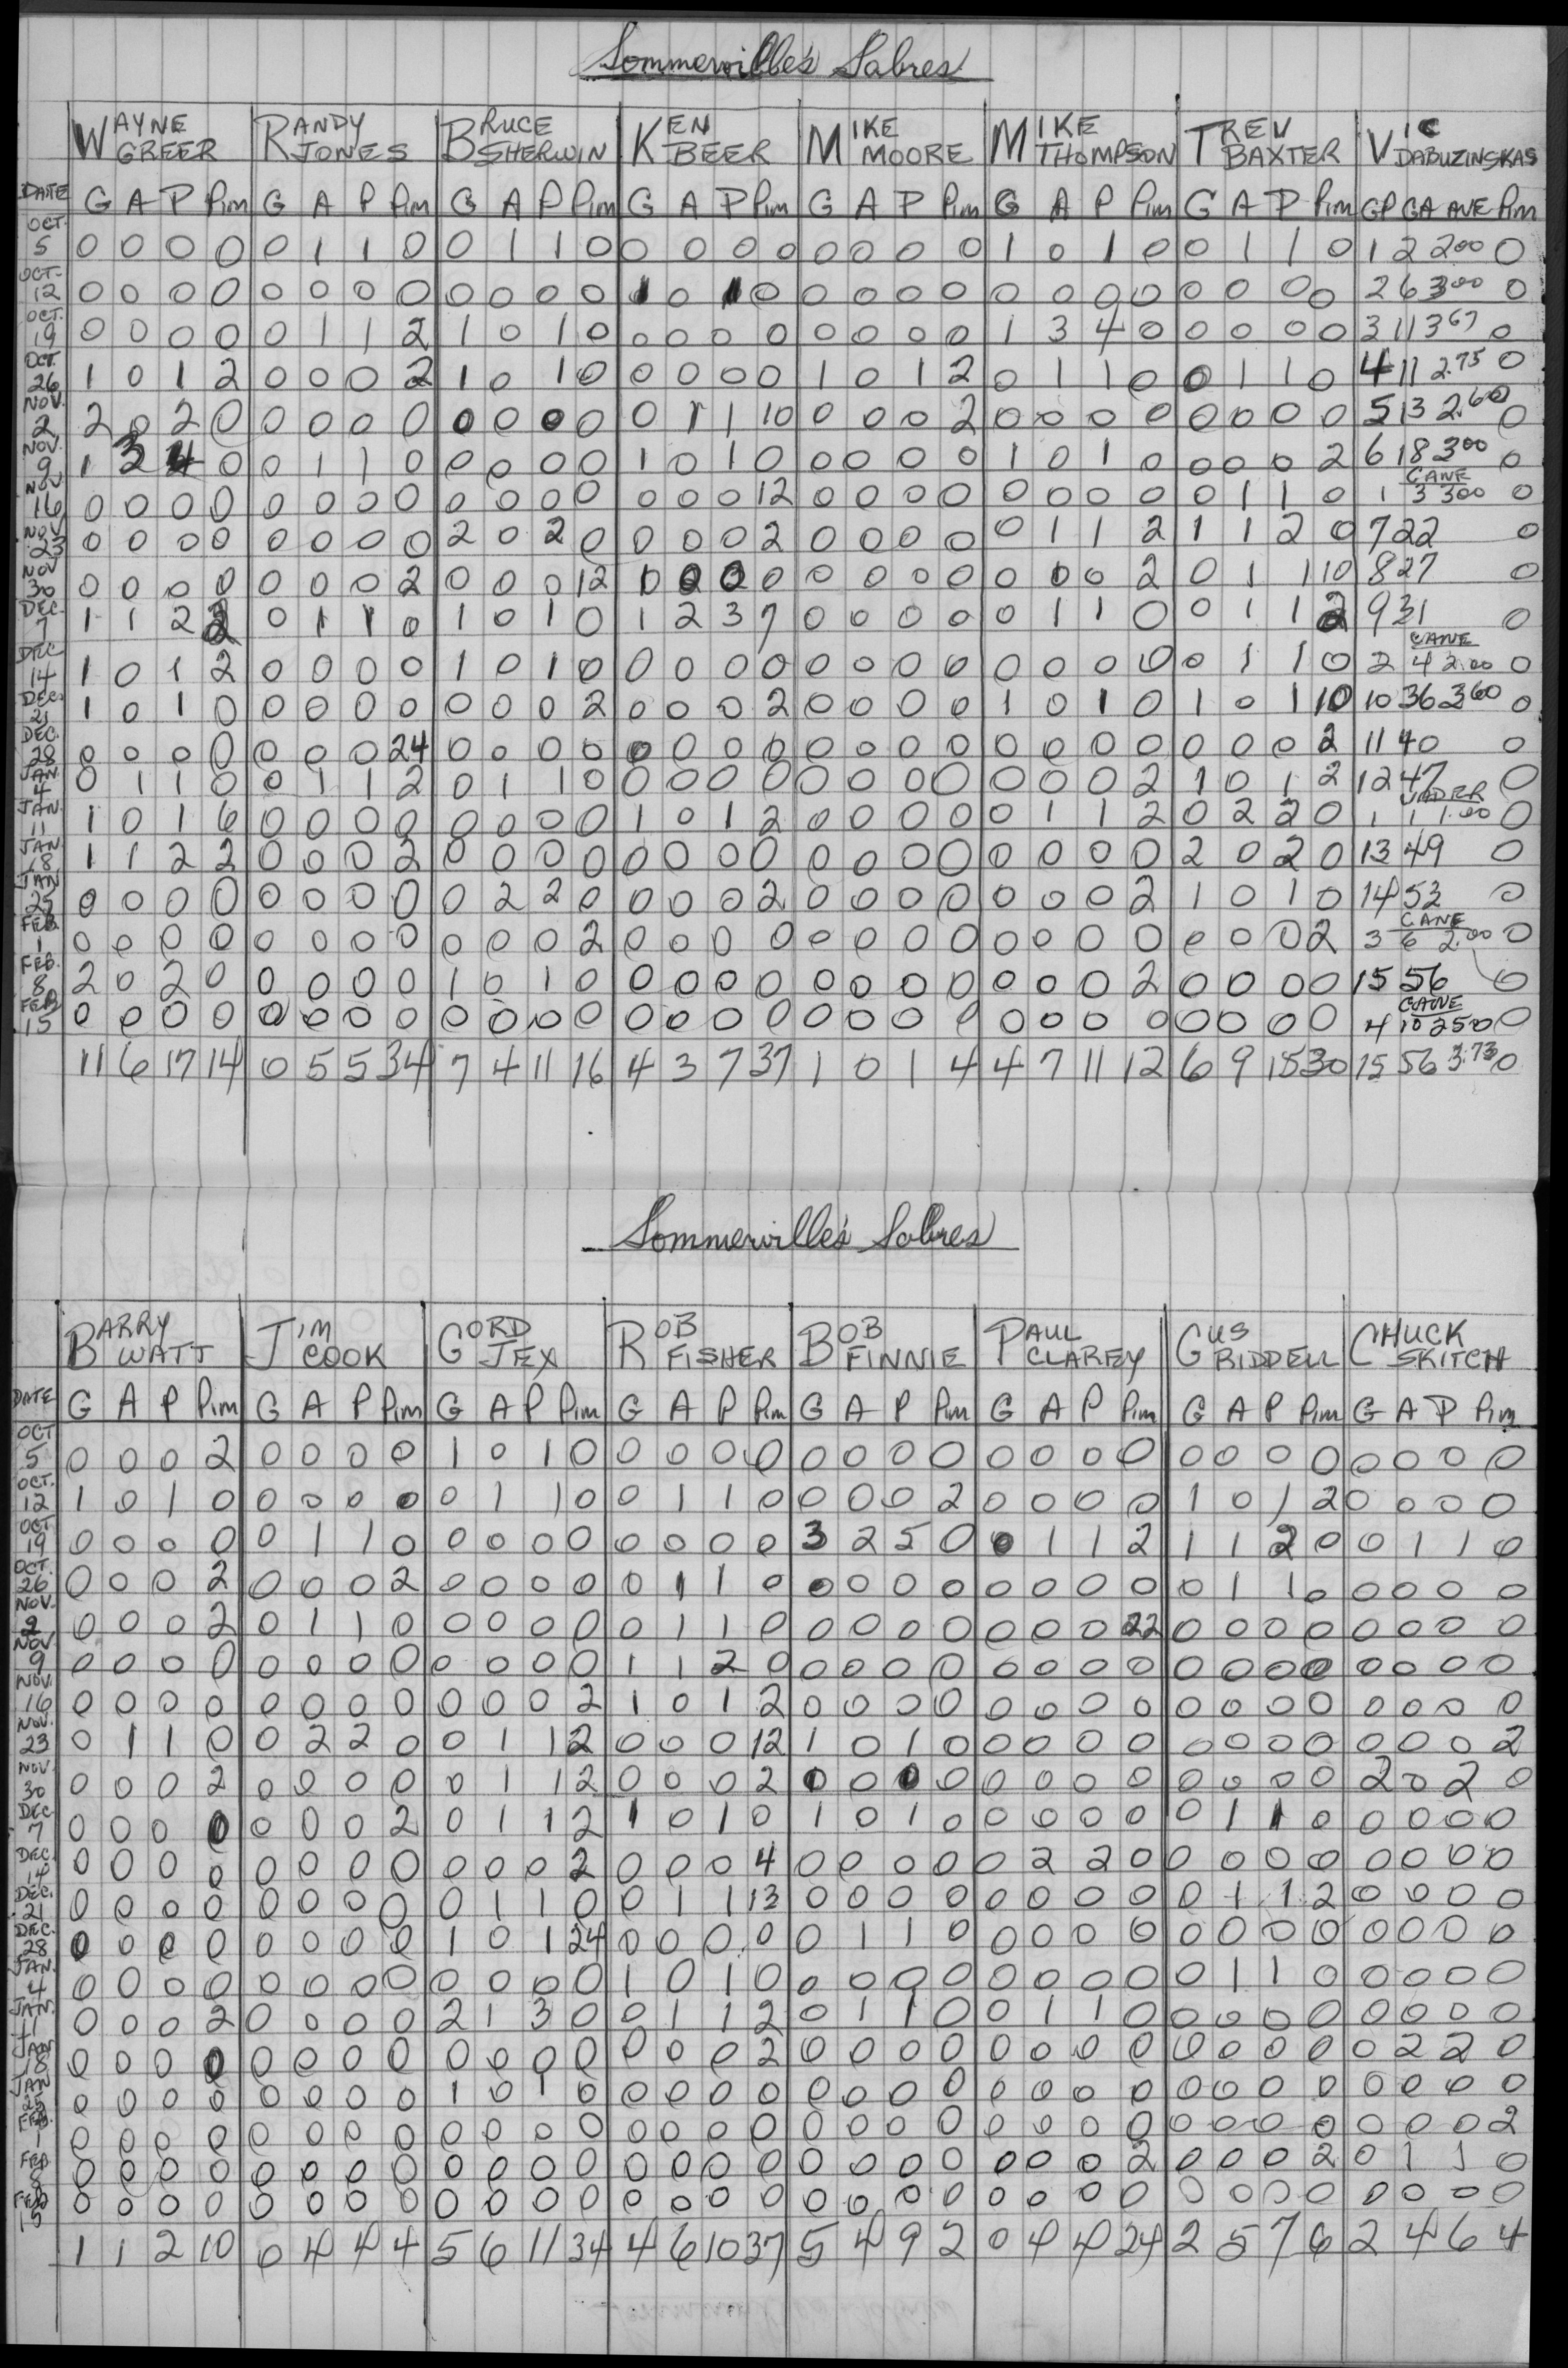 Sommerville's Sabres
WAYNE GREER RANDY JONES BRUCE SHERWIN KEN BEER MIKE MOORE MIKE THOMPSON TREV BAXTER VIC DABUZINSKAS
DATE G A P Pim G A P Pim G A P Pim G A P Pim G A P Pim G A P Pim G A P Pim GP GA AVE Pim
OCT. 5 0 0 0 0 0 1 1 0 0 1 1 0 0 0 0 0 0 0 0 0 1 0 1 0 0 1 1 0 1 2 2.00 0
OCT. 12 0 0 0 0 0 0 0 0 0 0 0 0 1 0 1 0 0 0 0 0 0 0 0 0 0 0 0 0 2 6 3.00 0
OCT. 19 0 0 0 0 0 1 1 2 1 0 1 0 0 0 0 0 0 0 0 0 1 3 4 0 0 0 0 0 3 11 3.67 0
OCT. 26 1 0 1 2 0 0 0 2 1 0 1 0 0 0 0 0 1 0 1 2 0 1 1 0 0 1 1 0 4 11 2.75 0
NOV. 2 2 0 2 0 0 0 0 0 0 0 0 0 0 1 1 10 0 0 0 2 0 0 0 0 0 0 0 0 5 13 2.60 0
NOV. 9 1 3 4 0 0 1 1 0 0 0 0 0 1 0 1 0 0 0 0 0 1 0 1 0 0 0 0 2 6 18 3.00 0
NOV 16 0 0 0 0 0 0 0 0 0 0 0 0 0 0 0 12 0 0 0 0 0 0 0 0 0 1 1 0 CANE 1 3 3.00 0
NOV 23 0 0 0 0 0 0 0 0 2 0 2 0 0 0 0 2 0 0 0 0 0 1 1 2 1 1 2 0 7 22 0
NOV 30 0 0 0 0 0 0 0 2 0 0 0 12 1 0 0 0 0 0 0 0 0 0 0 2 0 1 1 10 8 27 0
DEC. 7 1 1 2 2 0 1 1 0 1 0 1 0 1 2 3 7 0 0 0 0 0 1 1 0 0 1 1 2 9 31 0
DEC 14 1 0 1 2 0 0 0 0 1 0 1 0 0 0 0 0 0 0 0 0 0 0 0 0 0 1 1 0 CANE 2 4 2.00 0
DEC. 21 1 0 1 0 0 0 0 0 0 0 0 2 0 0 0 2 0 0 0 0 1 0 1 0 1 0 1 10 10 36 3.60 0
DEC. 28 0 0 0 0 0 0 0 24 0 0 0 0 0 0 0 0 0 0 0 0 0 0 0 0 0 0 0 2 11 40 0
JAN. 4 0 1 1 0 0 1 1 2 0 1 1 0 0 0 0 0 0 0 0 0 0 0 0 2 1 0 1 2 12 47 0
JAN. 11 1 0 1 6 0 0 0 0 0 0 0 0 1 0 1 2 0 0 0 0 0 1 1 2 0 2 2 0 1 1 1.00 0
JAN 18 1 1 2 2 0 0 0 2 0 0 0 0 0 0 0 0 0 0 0 0 0 0 0 0 2 0 2 0 13 49 0
JAN 25 0 0 0 0 0 0 0 0 0 2 2 0 0 0 0 2 0 0 0 0 0 0 0 2 1 0 1 0 14 53 0
FEB. 1 0 0 0 0 0 0 0 0 0 0 0 2 0 0 0 0 0 0 0 0 0 0 0 0 0 0 0 2 CANE 3 6 2.00 0
FEB. 8 2 0 2 0 0 0 0 0 1 0 1 0 0 0 0 0 0 0 0 0 0 0 0 2 0 0 0 0 15 56 0
FEB 15 0 0 0 0 0 0 0 0 0 0 0 0 0 0 0 0 0 0 0 0 0 0 0 0 0 0 0 0 CANE 4 10 2.50 0
11 6 17 14 0 5 5 34 7 4 11 16 4 3 7 37 1 0 1 4 4 7 11 12 6 9 15 30 15 56 3.73 0
Sommerville's Sabres
BARRY WATT JIM COOK GORD JEX ROB FISHER BOB FINNIE PAUL CLAREY GUS RIDDELL CHUCK SKITCH
DATE G A P Pim G A P Pim G A P Pim G A P Pim G A P Pim G A P Pim G A P Pim G A P Pim
OCT 5 0 0 0 2 0 0 0 0 1 0 1 0 0 0 0 0 0 0 0 0 0 0 0 0 0 0 0 0 0 0 0 0
OCT. 12 1 0 1 0 0 0 0 0 0 1 1 0 0 1 1 0 0 0 0 2 0 0 0 0 1 0 1 2 0 0 0 0
OCT 19 0 0 0 0 0 1 1 0 0 0 0 0 0 0 0 0 3 2 5 0 0 1 1 2 1 1 2 0 0 1 1 0
OCT. 26 0 0 0 2 0 0 0 2 0 0 0 0 0 1 1 0 0 0 0 0 0 0 0 0 0 1 1 0 0 0 0 0
NOV. 2 0 0 0 2 0 1 1 0 0 0 0 0 0 1 1 0 0 0 0 0 0 0 0 22 0 0 0 0 0 0 0 0
NOV. 9 0 0 0 0 0 0 0 0 0 0 0 0 1 1 2 0 0 0 0 0 0 0 0 0 0 0 0 0 0 0 0 0
NOV. 16 0 0 0 0 0 0 0 0 0 0 0 2 1 0 1 2 0 0 0 0 0 0 0 0 0 0 0 0 0 0 0 0
NOV. 23 0 1 1 0 0 2 2 0 0 1 1 2 0 0 0 12 1 0 1 0 0 0 0 0 0 0 0 0 0 0 0 2
NOV. 30 0 0 0 2 0 0 0 0 0 1 1 2 0 0 0 2 0 0 0 0 0 0 0 0 0 0 0 0 2 0 2 0
DEC 7 0 0 0 0 0 0 0 2 0 1 1 2 1 0 1 0 1 0 1 0 0 0 0 0 0 1 1 0 0 0 0 0
DEC. 14 0 0 0 0 0 0 0 0 0 0 0 2 0 0 0 4 0 0 0 0 0 2 2 0 0 0 0 0 0 0 0 0
DEC. 21 0 0 0 0 0 0 0 0 0 1 1 0 0 1 1 13 0 0 0 0 0 0 0 0 0 1 1 2 0 0 0 0
DEC. 28 0 0 0 0 0 0 0 0 1 0 1 24 0 0 0 0 0 1 1 0 0 0 0 0 0 0 0 0 0 0 0 0
JAN. 4 0 0 0 0 0 0 0 0 0 0 0 0 1 0 1 0 0 0 0 0 0 0 0 0 0 1 1 0 0 0 0 0
JAN. 11 0 0 0 2 0 0 0 0 2 1 3 0 0 1 1 2 0 1 1 0 0 1 1 0 0 0 0 0 0 0 0 0
JAN 18 0 0 0 0 0 0 0 0 0 0 0 0 0 0 0 2 0 0 0 0 0 0 0 0 0 0 0 0 0 2 2 0
JAN 25 0 0 0 0 0 0 0 0 1 0 1 0 0 0 0 0 0 0 0 0 0 0 0 0 0 0 0 0 0 0 0 0
FEB. 1 0 0 0 0 0 0 0 0 0 0 0 0 0 0 0 0 0 0 0 0 0 0 0 0 0 0 0 0 0 0 0 2
FEB. 8 0 0 0 0 0 0 0 0 0 0 0 0 0 0 0 0 0 0 0 0 0 0 0 2 0 0 0 2 0 1 1 0
FEB 15 0 0 0 0 0 0 0 0 0 0 0 0 0 0 0 0 0 0 0 0 0 0 0 0 0 0 0 0 0 0 0 0
1 1 2 10 0 4 4 4 5 6 11 34 4 6 10 37 5 4 9 2 0 4 4 24 2 5 7 6 2 4 6 4